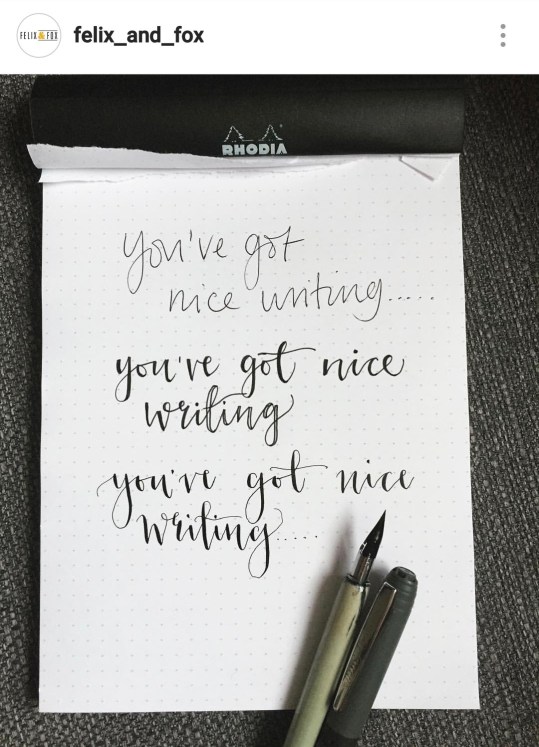 FELIX & FOX
felix_and_fox
RHODIA
you've got
nice writing.....
you've got nice
writing
you've got nice
writing.....